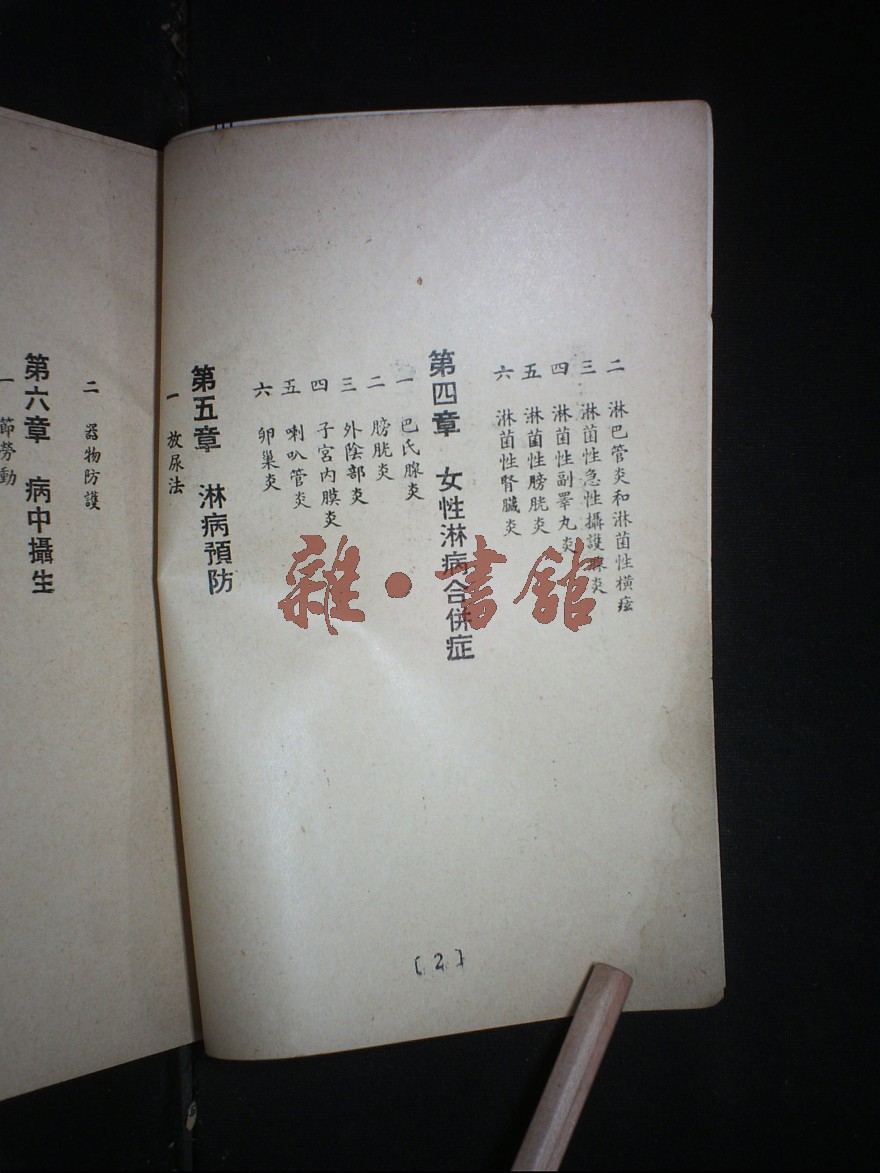 二 淋巴管炎和淋菌性橫痃
三 淋菌性急性攝護腺炎
四 淋菌性副睪丸炎
五 淋菌性膀胱炎
六 淋菌性腎臟炎
第四章 女性淋病合併症
一 巴氏腺炎
二 膀胱炎
三 外陰部炎
四 子宮內膜炎
五 喇叭管炎
六 卵巢炎
第五章 淋病預防
一 放尿法
〔2〕
二 器物防護
第六章 病中攝生
一 節勞動
雜·書館